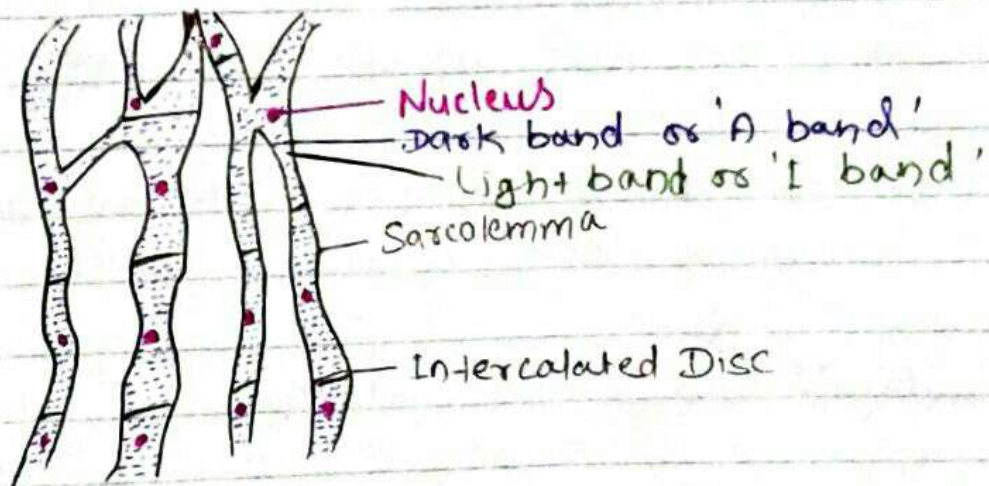 Nucleus
Dark band or 'A band'
Light band or 'I band'
Sarcolemma
Intercalated Disc